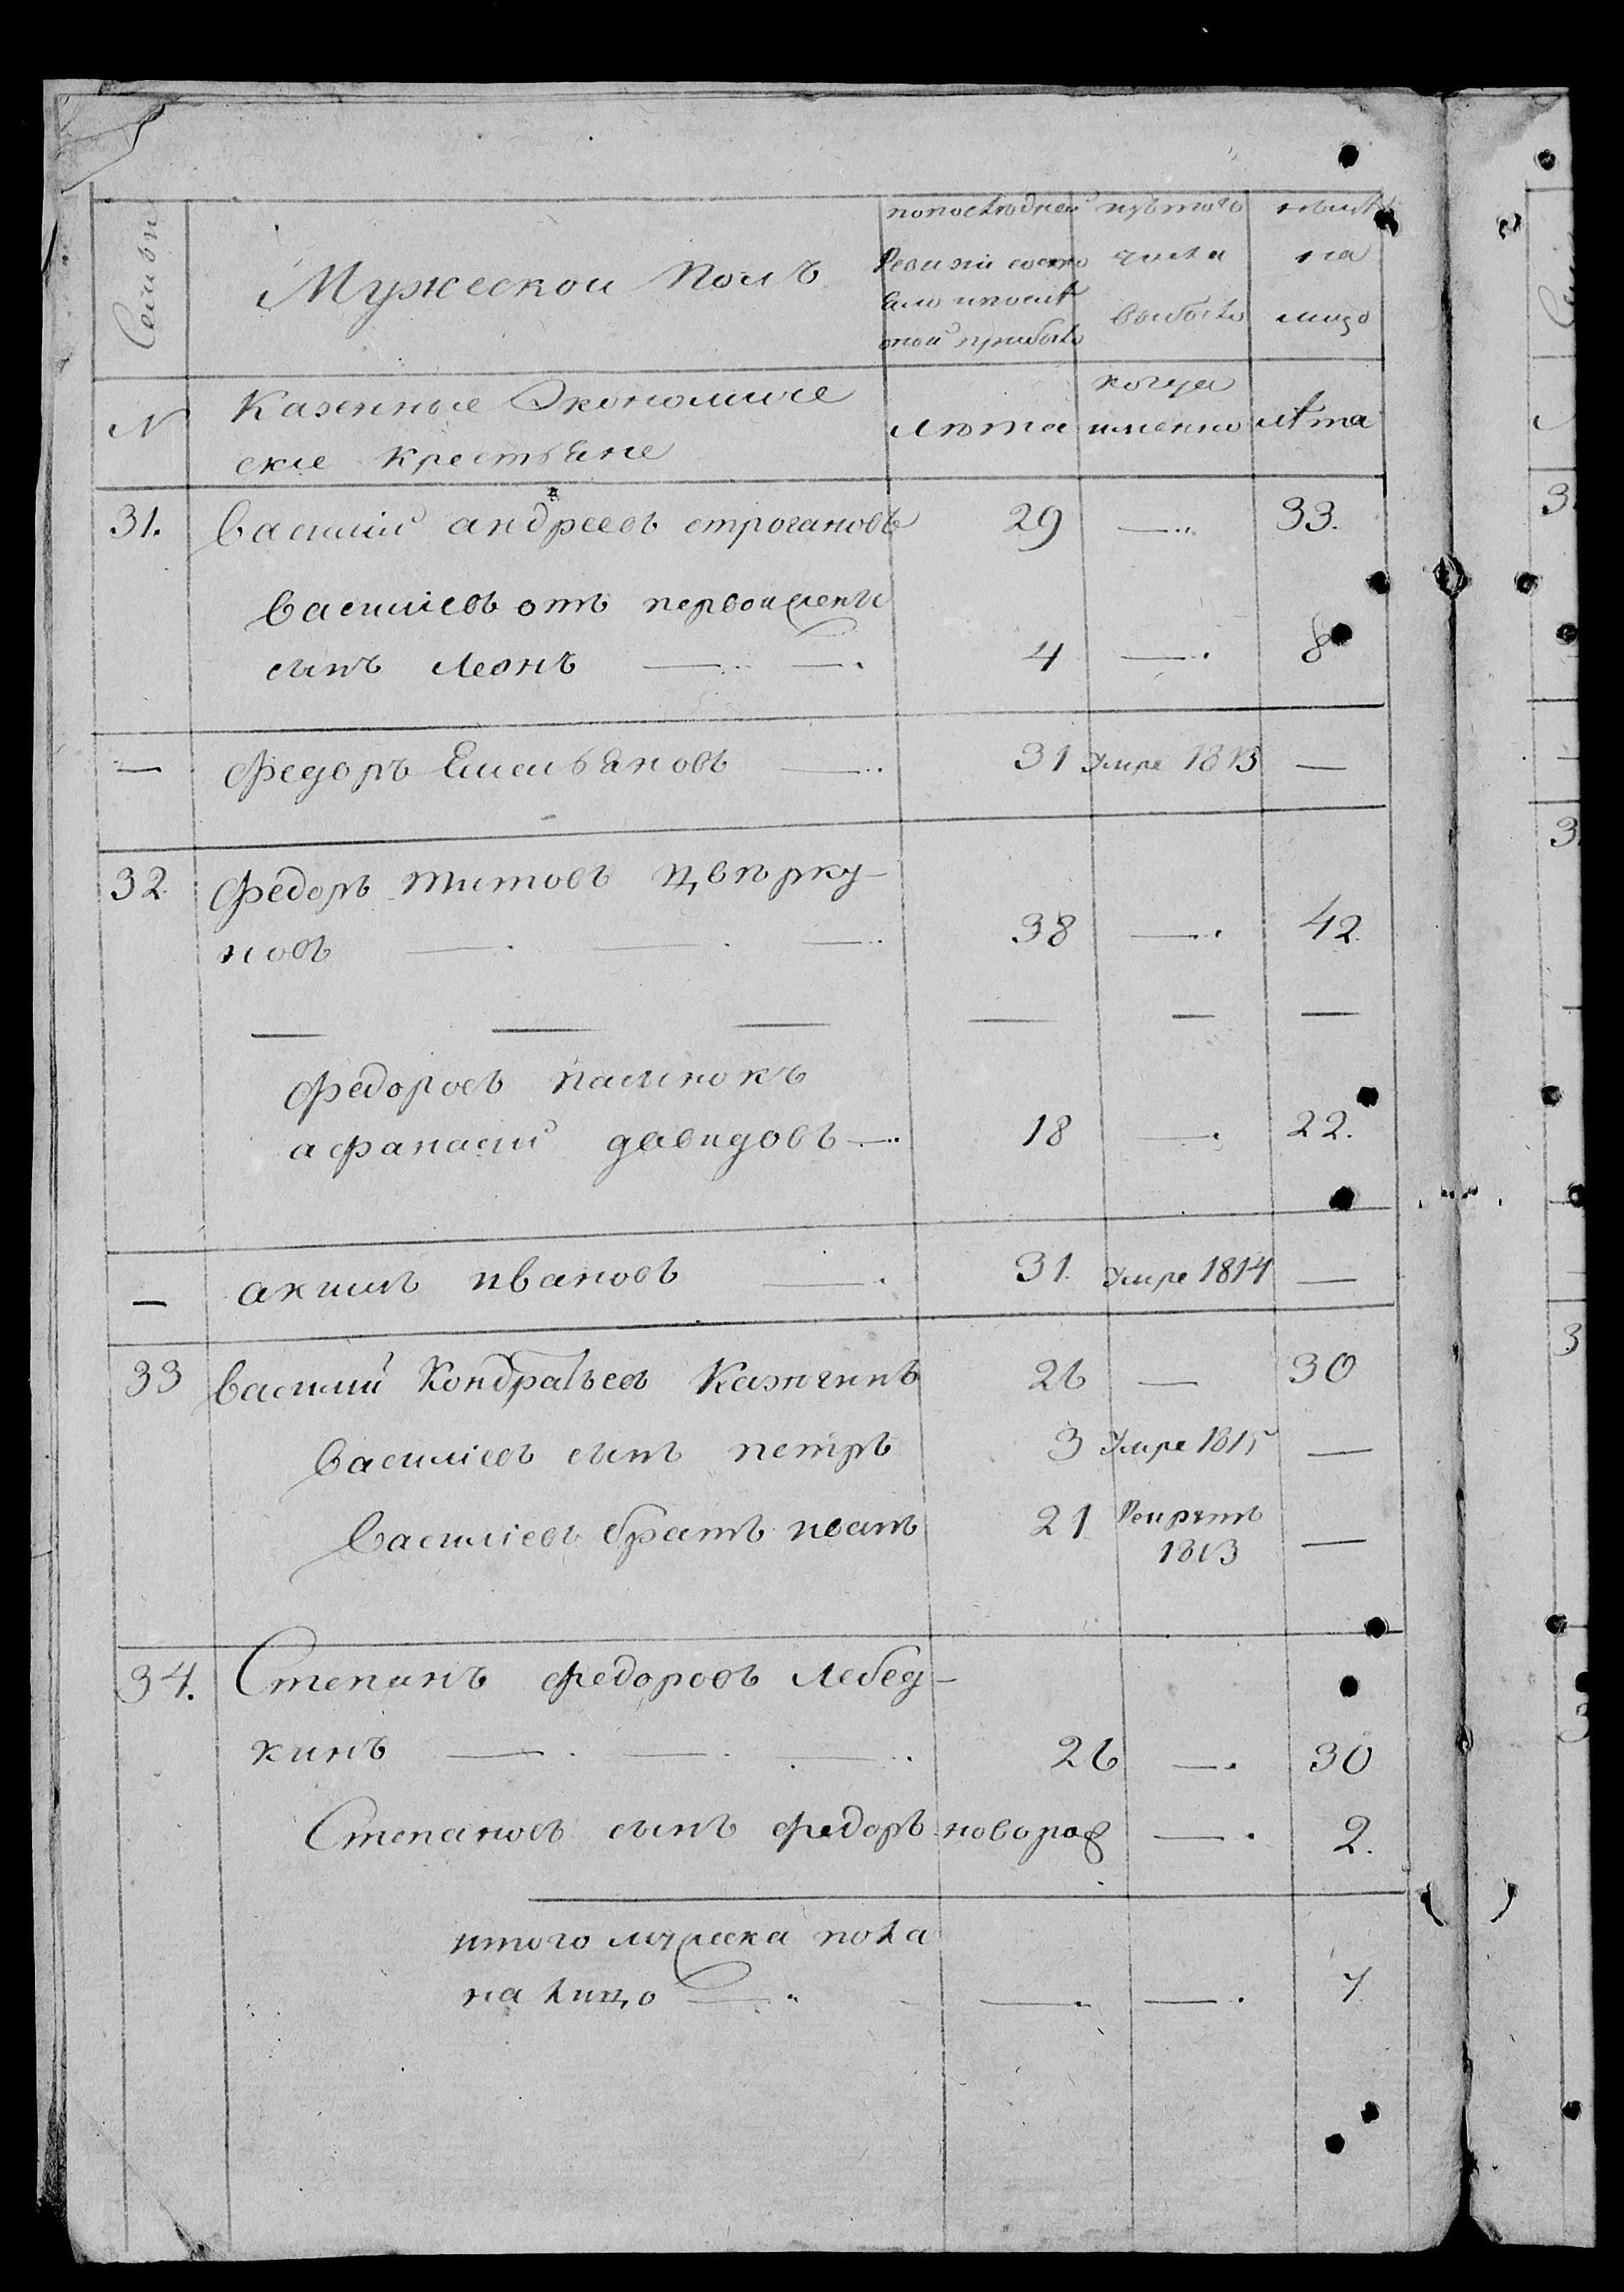 Семьи
Мужескои Полъ
попоследней
Ревизіи состо
яло ипосле
оной прибыло
изътого
числа
выбыло
ныне
на
лицо
N
Казенные Экономиче
ские Крестьяне
лѣта
когда
именно
лѣта
31. Василий андреевъ строгановъ 29 — 33.
Василіевъ отъ первои жены
сынъ Леонъ — — 4 — 8
— Федоръ Емельяновъ — 31 Умре 1813 —
32 Федоръ титовъ цвѣрку-
новъ — — — 38 — 42.
— — — — — —
Федоровъ пасынокъ
афанасий давидовъ — 18 — 22.
— акимъ ивановъ — 31. Умре 1814 —
33 Василий Кондратьевъ Кажгинъ 26 — 30
Василіевъ сынъ петръ 3 Умре 1815 —
Василіевъ братъ иванъ 21 Рекрутъ
1813 —
34. Степанъ федоровъ Лебед-
кинъ — — — 26 — 30
Степановъ сынъ федоръ новорож — 2.
итого мужеска пола
на лицо — — — 7
3
3
3